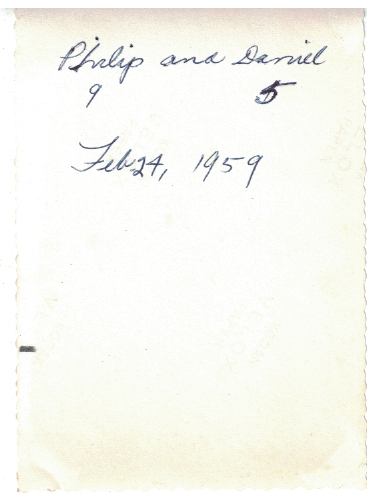 Philip and Daniel
9 5
Feb 24, 1959